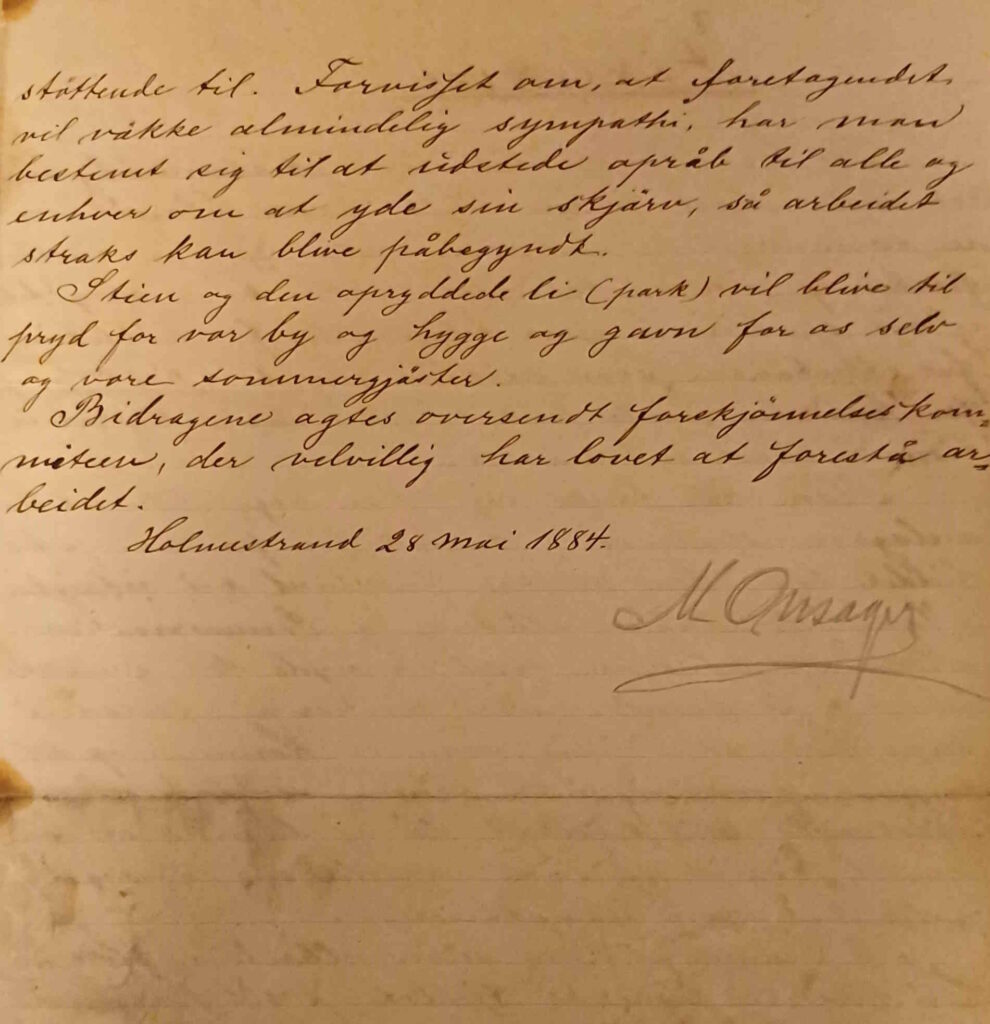 støttende til. Forvisset om, at foretagendet
vil väkke almindelig sympathi, har man
bestemt sig til at udstede opråb til alle og
enhver om at yde sin skjärv, så arbeidet
straks kan blive påbegyndt.
Stien og den opryddede li (park) vil blive til
pryd for vor by og hygge og gavn for os selv
og vore sommergjäster.
Bidragene agtes oversendt forskjønnelseskom=
miteen, der velvillig har lovet at forestå ar=
beidet.
Holmestrand 28 mai 1884.
M Onsager